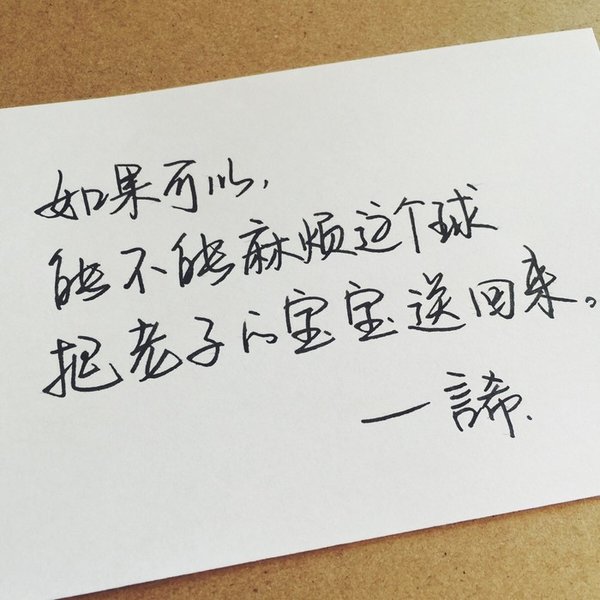 如果可以,
能不能麻烦这个球
把老子的宝宝送回来。
一諦.